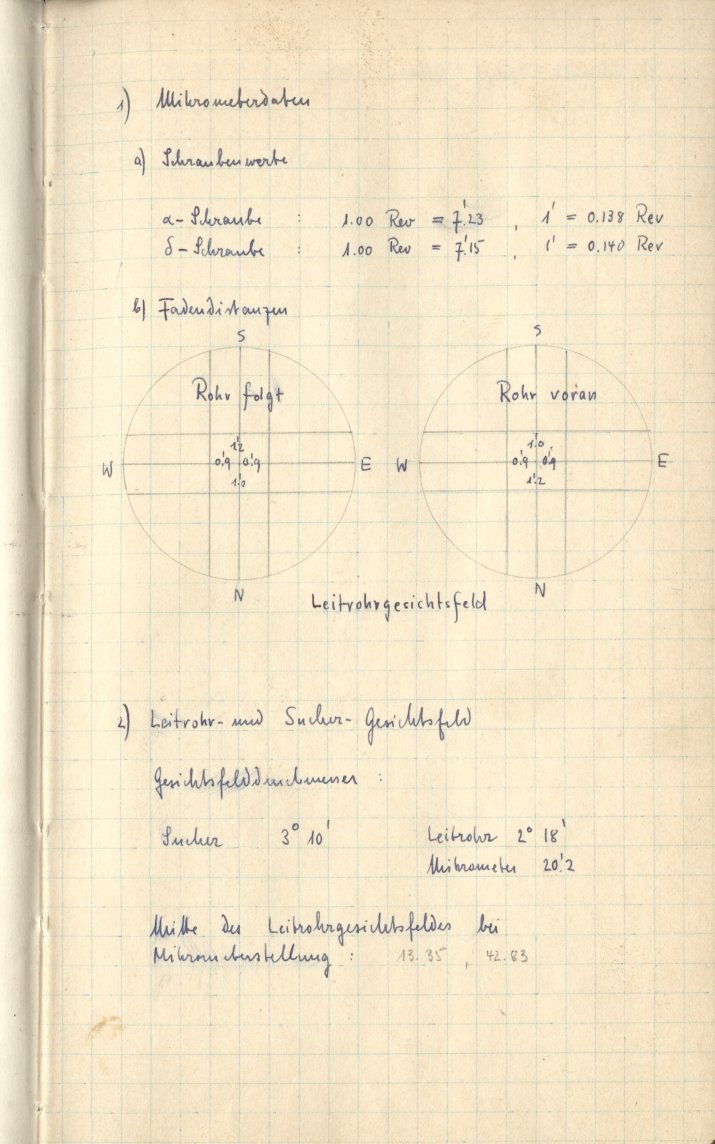 1) Mikrometerdaten
a) Schraubenwerte
α-Schraube : 1.00 Rev = 7.'23 , 1' = 0.138 Rev
δ-Schraube : 1.00 Rev = 7.'15 , 1' = 0.140 Rev
b) Fadendistanzen
S
Rohr folgt
1.'2
W 0.'9 0.'9 E
1.'0
N
S
Rohr voran
1.'0
W 0.'9 0.'9 E
1.'2
N
Leitrohrgesichtsfeld
2) Leitrohr- und Sucher-Gesichtsfeld
Gesichtsfelddurchmesser :
Sucher 3° 10' Leitrohr 2° 18'
Mikrometer 20.'2
Mitte des Leitrohrgesichtsfeldes bei
Mikrometerstellung : 13.35 , 42.83